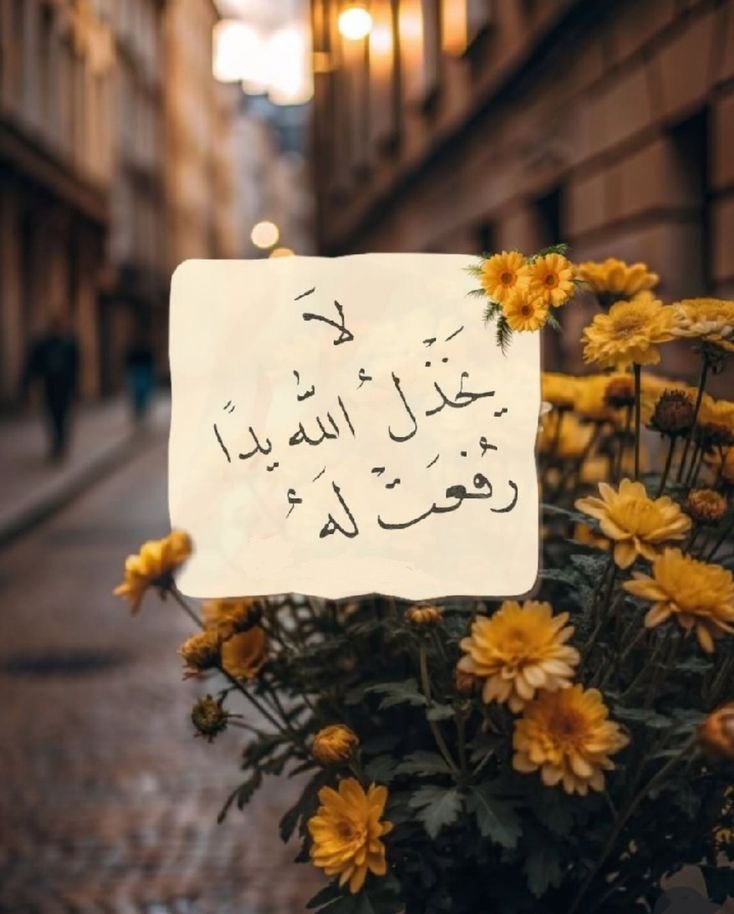 لاَ
يَخَذّل ُ اللّٰه يدًا
رُفعَتْ لهَ ُ